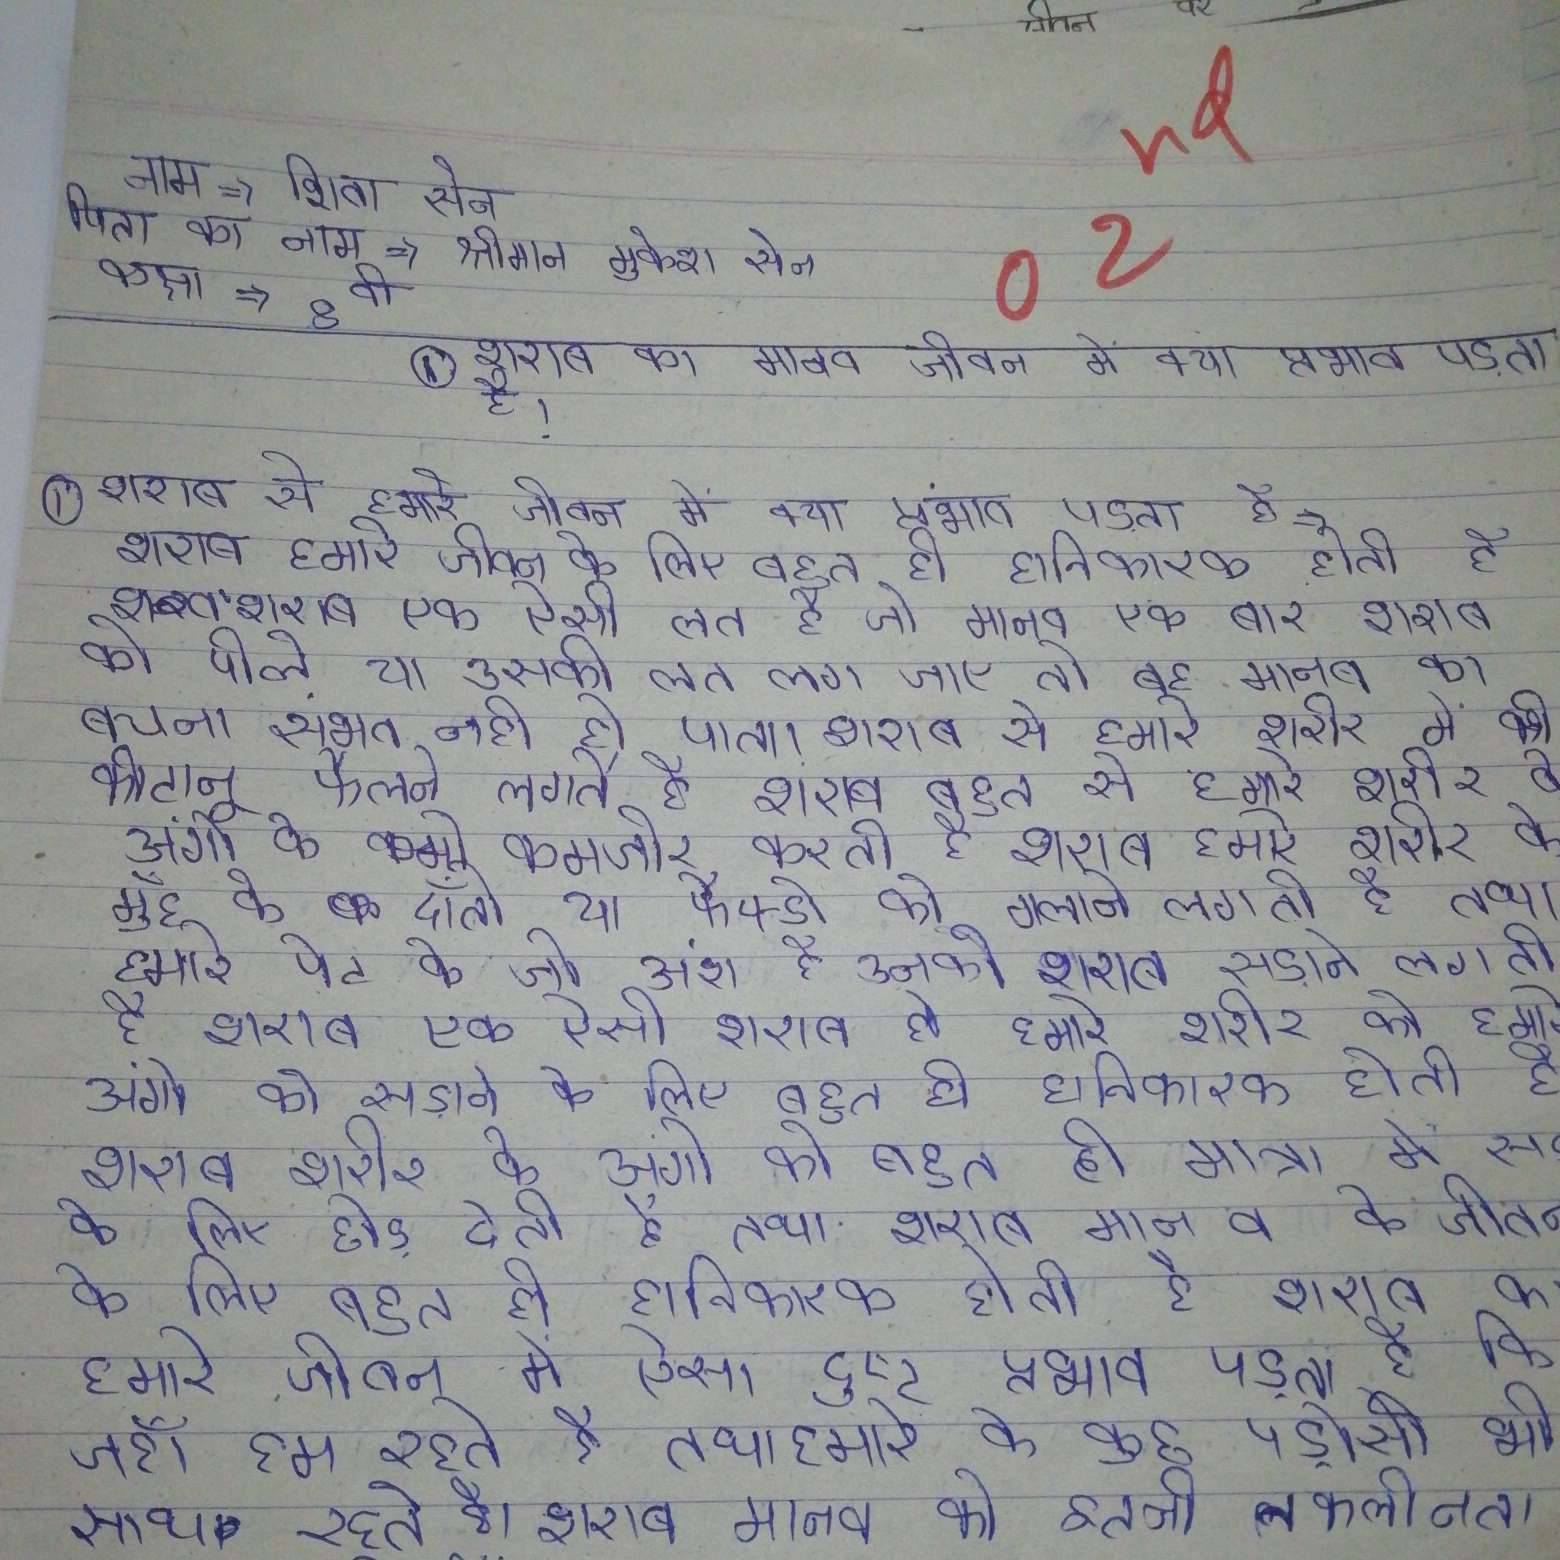 जीवन पर
nd
02
नाम ⇒ शिवा सेन
पिता का नाम ⇒ श्रीमान मुकेश सेन
कक्षा ⇒ 8 वी
① शराब का मानव जीवन में क्या प्रभाव पड़ता
है!
① शराब से हमारे जीवन में क्या प्रंभाव पडता है ⇒
शराब हमारे जीवन के लिए बहुत ही हानिकारक होती है
शराब एक ऐसी लत है जो मानव एक बार शराब
को पीले या उसकी लत लग जाए तो बह मानब का
बचना संभव नही हो पाता। शराब से हमारे शरीर में की
कीटानू फैलने लगते है शराब बहुत से हमारे शरीर के
अंगो के कमजोर करती है शराब हमारे शरीर के
मुँह के दाँतो या फैफ्डो को गलाने लगती है तथा
हमारे पेट के जो अंश है उनको शराब सड़ाने लगती
है शराब एक ऐसी शराब है हमारे शरीर को हमारे
अंगो को सड़ाने के लिए बहुत ही हानिकारक होती है
शराब शरीर के अंगो को बहुत ही मात्रा में
के लिए छोड़ देती है तथा शराब मानव के जीवन
के लिए बहुत ही हानिकारक होती है शराब का
हमारे जीवन में ऐसा दुष्ट प्रभाव पड़ता है कि
जहाँ हम रहते है तथा हमारे के कुछ पड़ोसी भी
साथ रहते है। शराब मानव को इतनी